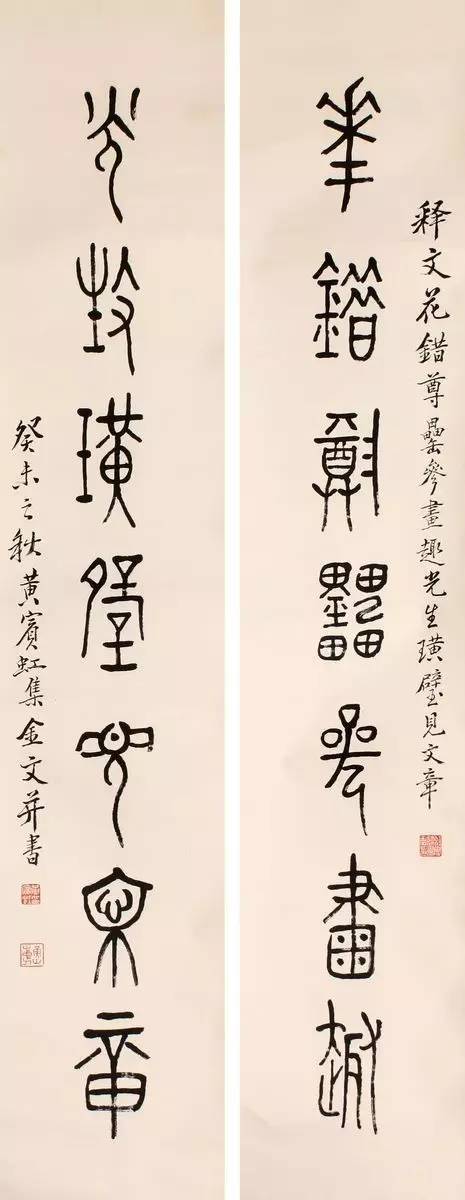 释文花錯尊罍參畫趣光生璜璧見文章
華錯尊罍參畫趣
光生璜璧見文章
癸未之秋黃賓虹集金文并書